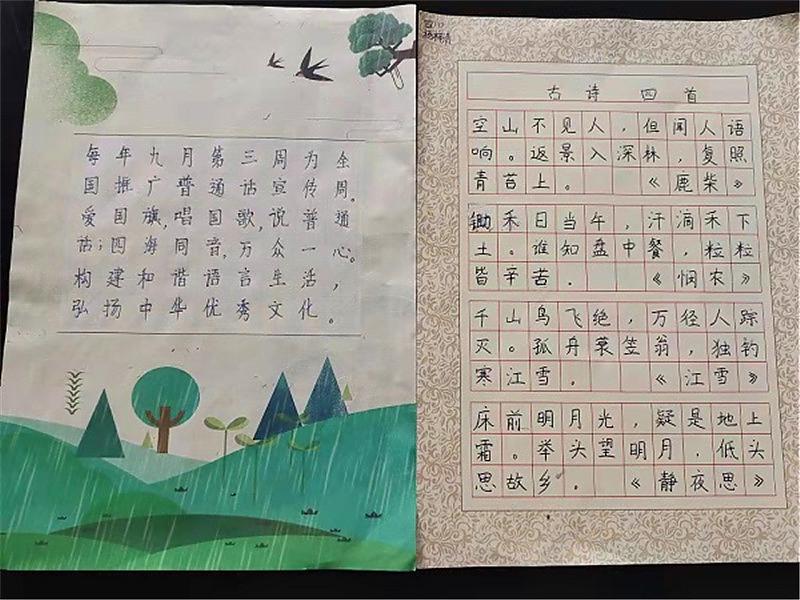 每年九月第三周为全
国推广普通话宣传周。
爱国旗,唱国歌,说普通
话;四海同音,万众一心。
构建和谐语言生活,
弘扬中华优秀文化。
古诗 四首
空山不见人,但闻人语
响。返景入深林,复照
青苔上。《鹿柴》
锄禾日当午,汗滴禾下
土。谁知盘中餐,粒粒
皆辛苦。《悯农》
千山鸟飞绝,万径人踪
灭。孤丹蓑笠翁,独钓
寒江雪。《江雪》
床前明月光,疑是地上
霜。举头望明月,低头
思故乡。《静夜思》